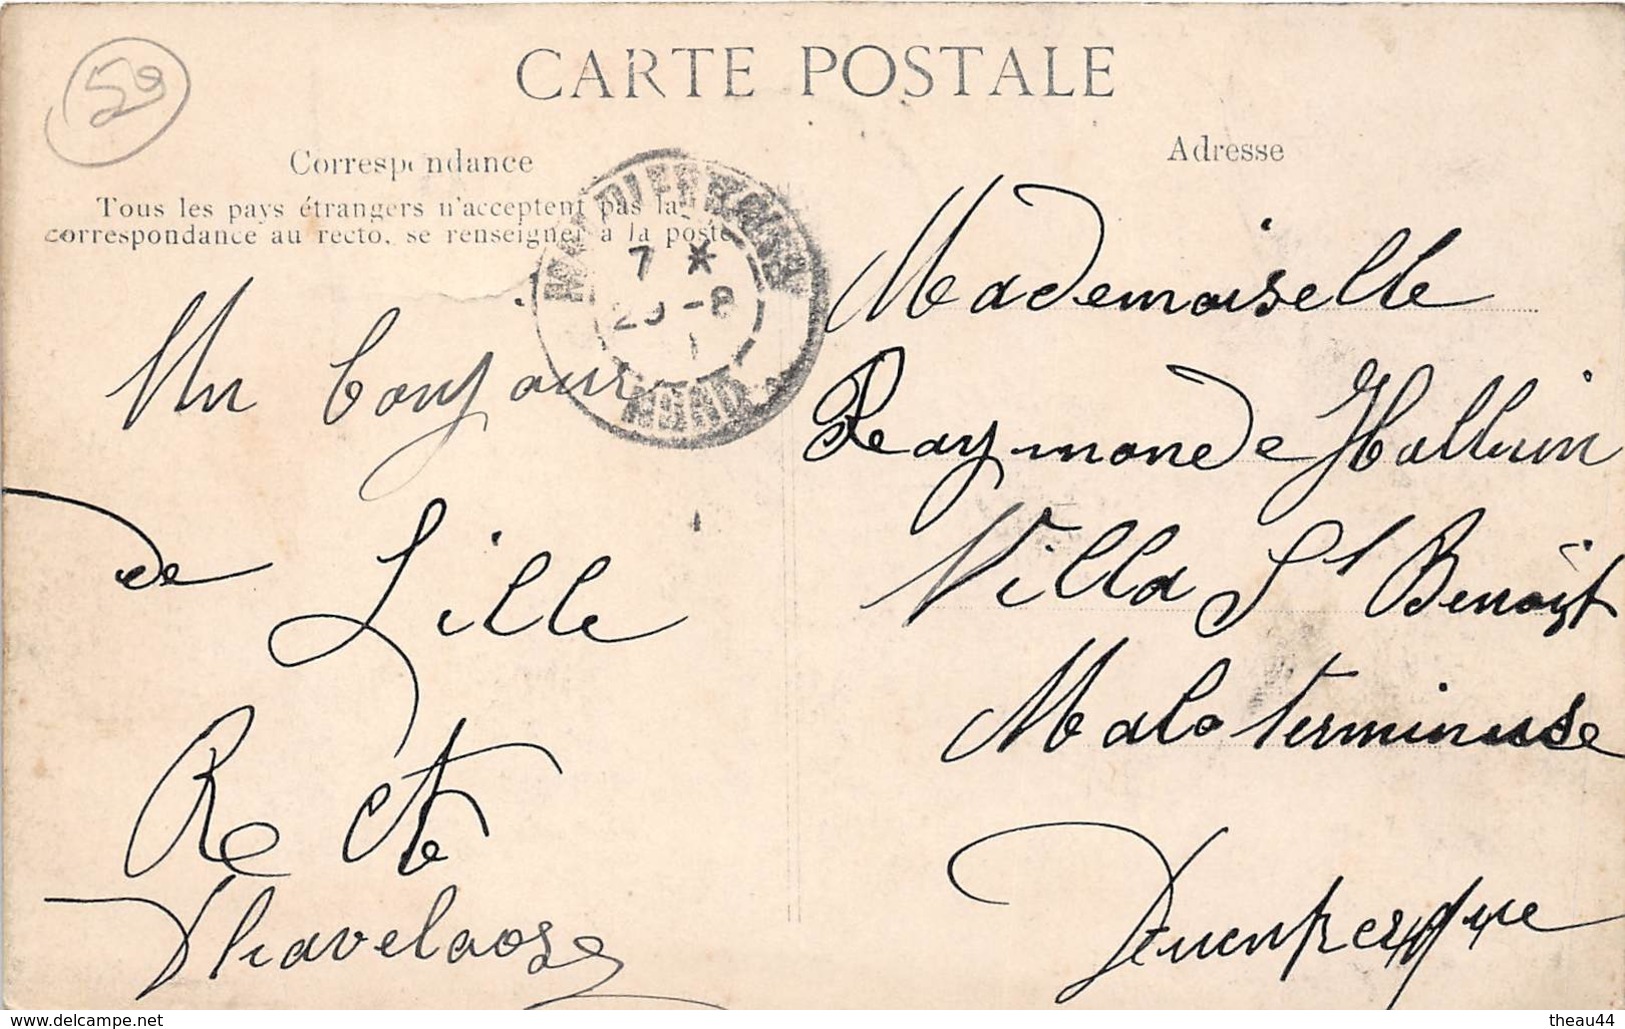 59
CARTE POSTALE
Correspondance
Tous les pays étrangers n'acceptent pas la
correspondance au recto, se renseigner à la poste
7 *
29 -8
NORD
Un bonjour
de Lille
R et
Adresse
Mademoiselle
Raymonde Halluin
Villa St Benoist
Malo terminuse
Duenkerque
www.delcampe.net
theau44